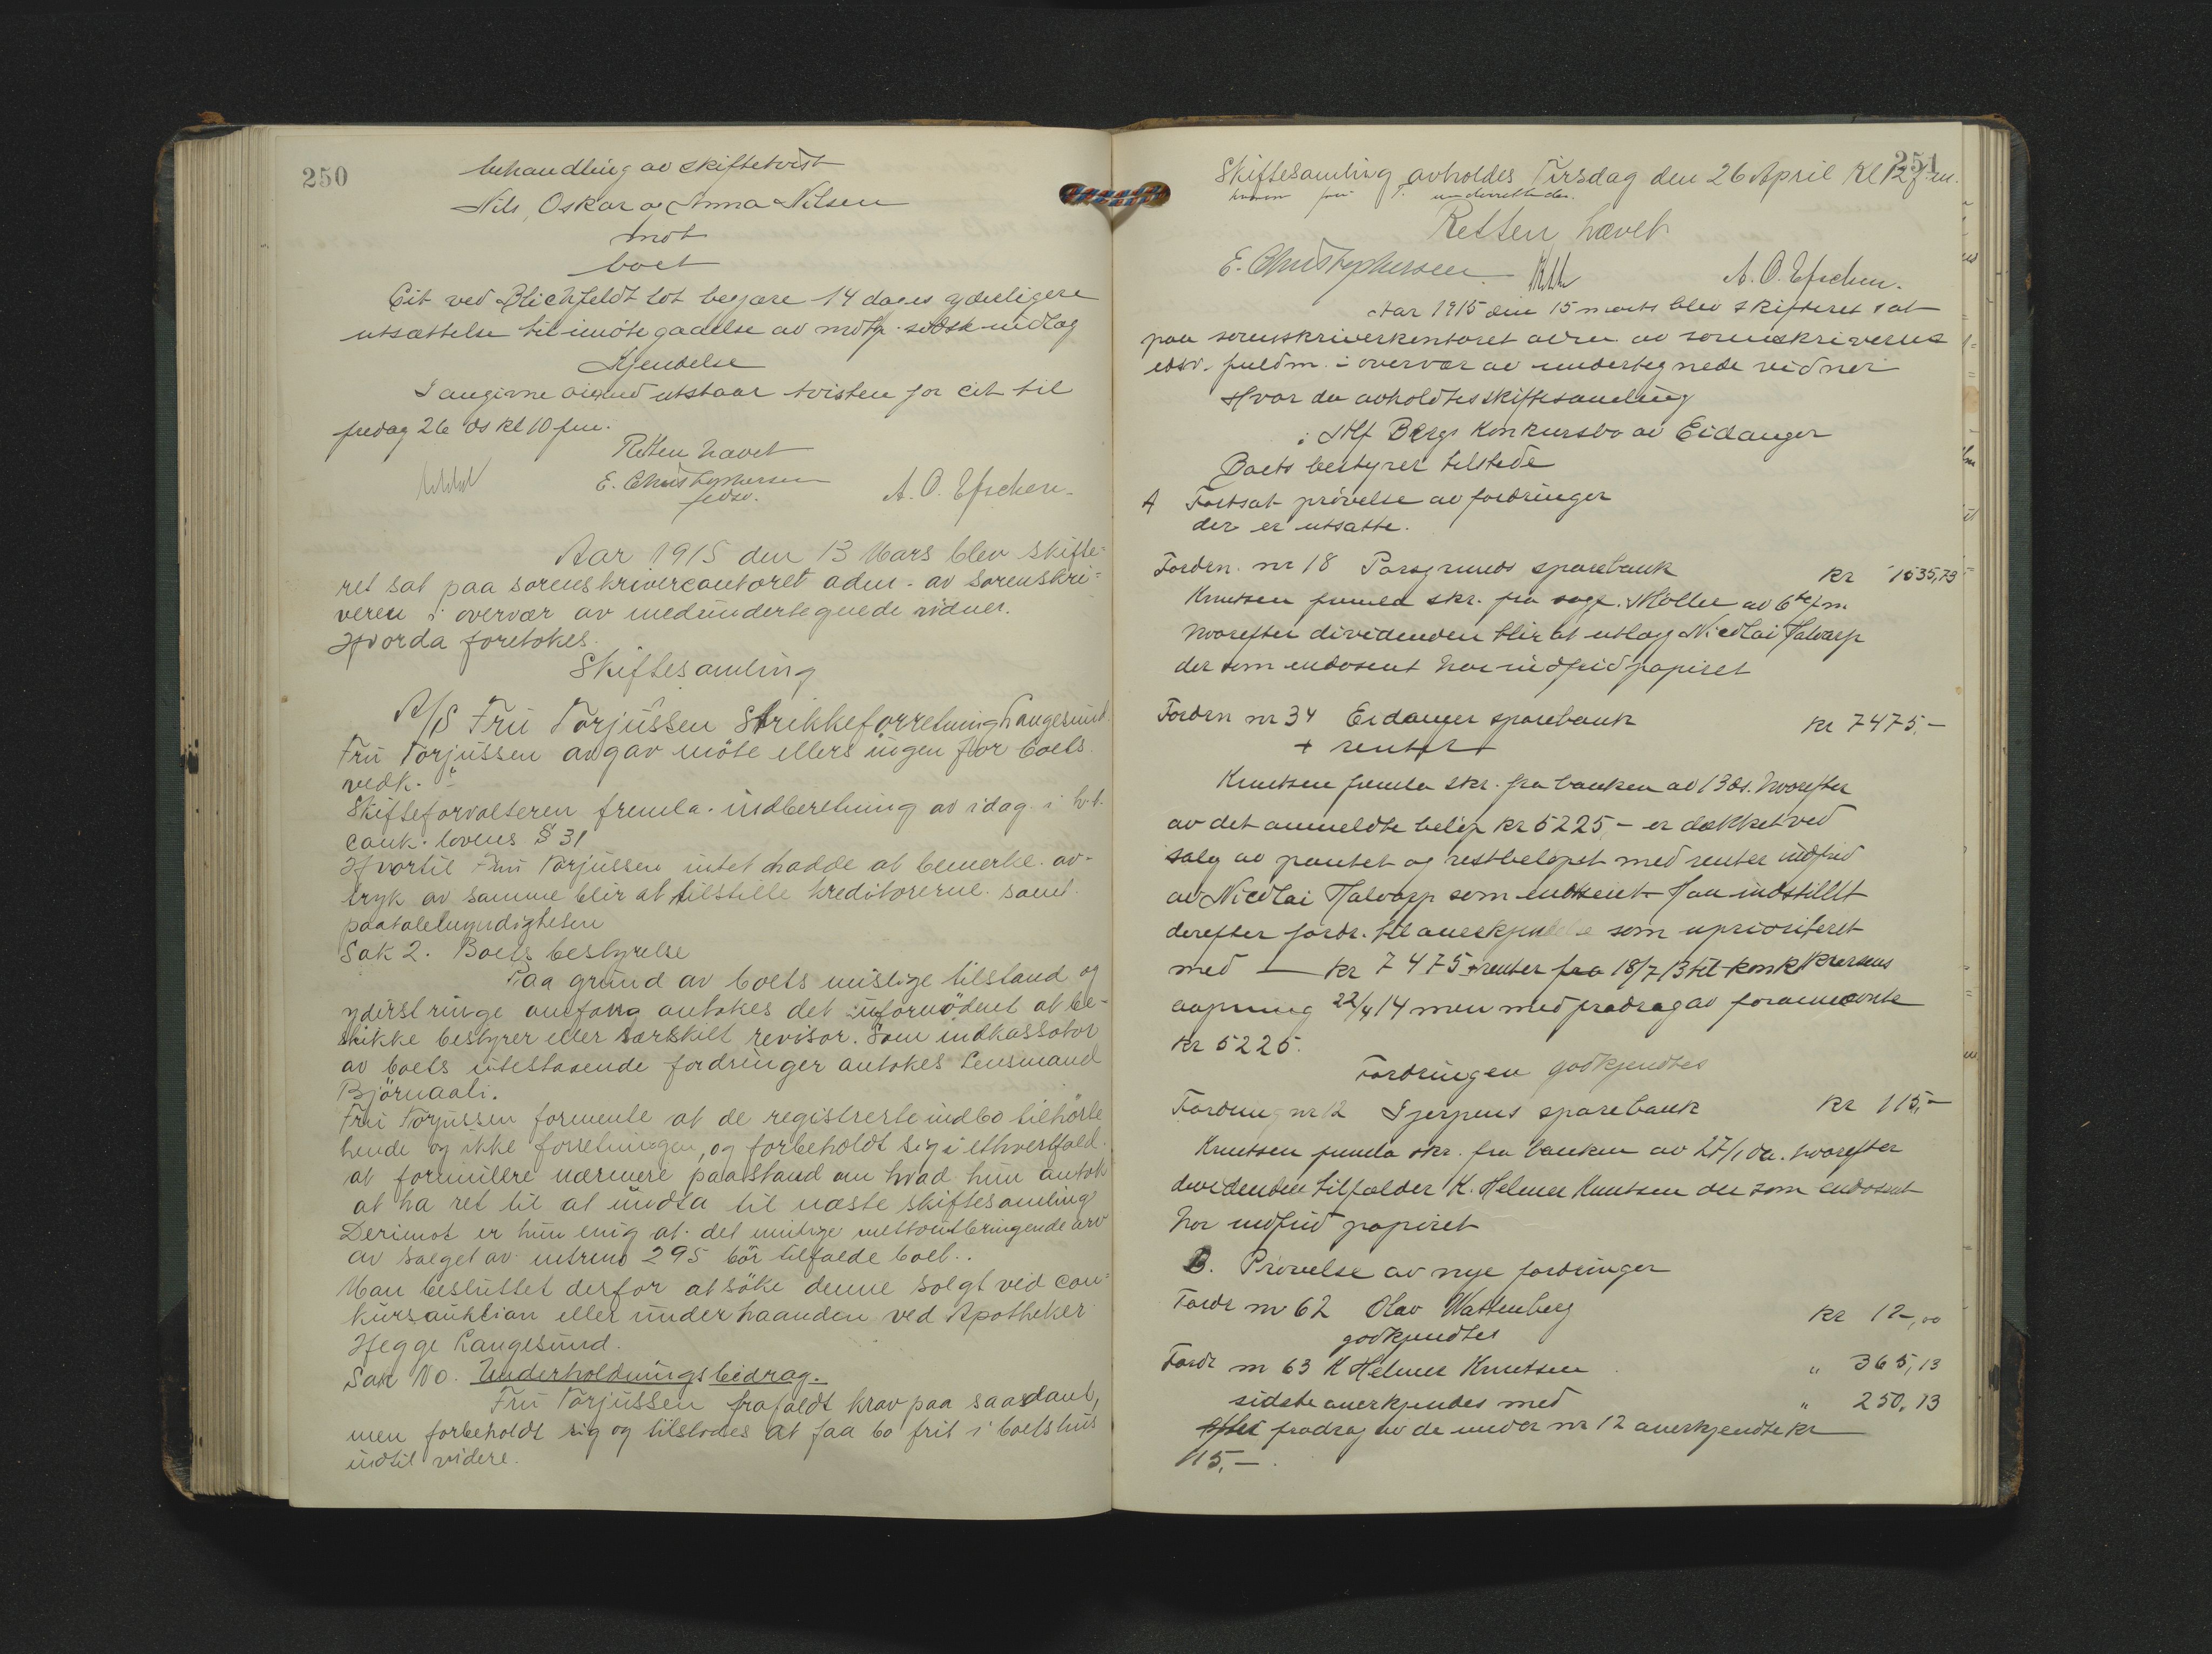 250
behandling av skiftetvist
Nils, Oskar og Anna Nilsen
mot
boet
Cit ved Blichfeldt lot begjære 14 dages yderligere
utsættelse til imøtegaaelse av motp.
Kjendelse
I angivne øiemed utstaar tvisten for cit til
fredag 26 ds kl 10 fm.
Retten hævet
E. Christophersen
A. O. Efschen.
Aar 1915 den 13 Mars blev skifte=
ret sat paa sorenskrivercontoret adm. av sorenskri=
veren i overvær av medundertegnede vidner.
Hvorda foretokes.
Skiftesamling
A/S Fru Torjussen Strikkeforretning Langesund.
Fru Torjussen avgav møte ellers ingen for boets
vedk.
Skifteforvalteren fremla indberetning av idag i h.t.
conk. lovens § 31
Hvortil Fru Torjussen intet hadde at bemerke. av-
tryk av samme blir at tilstille kreditorerne samt
paatalemyndigheten
Sak 2. Boets bestyrelse
Paa grund av boets mislige tilstand og
yderst ringe omfang antokes det ufornødent at be-
skikke bestyrer eller særskilt revisor. Som indkassator
av boets utestaaende fordringer antokes Lensmand
Björnaali.
Fru Torjussen formente at de registrerte indbo tilhørte
hende og ikke forretningen, og forbeholdt sig i ethvertfald
at formulere nærmere paastand om hvad hun antok
at ha ret til at undta til næste skiftesamling
Derimot er hun enig at det mulige nettoutbringende
av salget av 295 bör tilfalde boet..
Man besluttet derfor at söke denne solgt ved con=
kursauktion eller underhaanden ved Apotheker
Hegge Langesund.
Sak No. Underholdningsbidrag.
Fru Torjussen frafaldt krav paa saadant,
men forbeholdt sig og tilstodes at faa bo frit i boets hus
indtil videre.
251
Skiftesamling avholdes Tirsdag den 26 April Kl 12 f.m.
Retten hævet
E. Christophersen
A. O. Efschen.
Aar 1915 den 15 marts blev skifteret sat
paa sorenskriverkontoret adm av sorenskriverens
edsv. fuldm. i overvær av undertegnede vidner
Hvor da avholdtes skiftesamling
i Alf Bergs Konkursbo av Eidanger
Boets bestyrer tilstede
A Fortsat prøvelse av fordringer
der er utsatte.
Fordr. nr 18 Porsgrunds sparebank kr 1535,73
Knutsen fremla skr. fra sagf. Møller av 6te f.m.
hvorefter dividenden blir at utlægg Nicolai Halvorp
der som endosent har indfriet papiret
Fordr nr 34 Eidanger sparebank kr 7475.-
+ renter
Knutsen fremla skr. fra banken av 13 ds. hvorefter
av det anmeldte beløp kr 5225,- er dækket ved
salg av pantet og restbeløpet med renter indfriet
av Nicolai Halvorp som endosent Han indstillt
derefter fordr. til anerkjendelse som uprioriteret
med — kr 7475 + renter fra 18/7 13 til konkursens
aapning 22/4 14 men med fradrag av forannævnte
kr 5225.
Fordringen godkjendtes
Fordring nr 12 Gjerpens sparebank kr 115,-
Knutsen fremla skr. fra banken av 27/1 da. hvorefter
dividenden tilfalder K. Helmer Knutsen der som endosent
har indfriet papiret
B. Prøvelse av nye fordringer
Fordr nr 62 Olav Wattenberg kr 12,00
godkjendtes
Fordr nr 63 K Helmer Knutsen " 365,13
sidste anerkjendes med " 250,13
efter fradrag av de under nr 12 anerkjendte kr
115,-